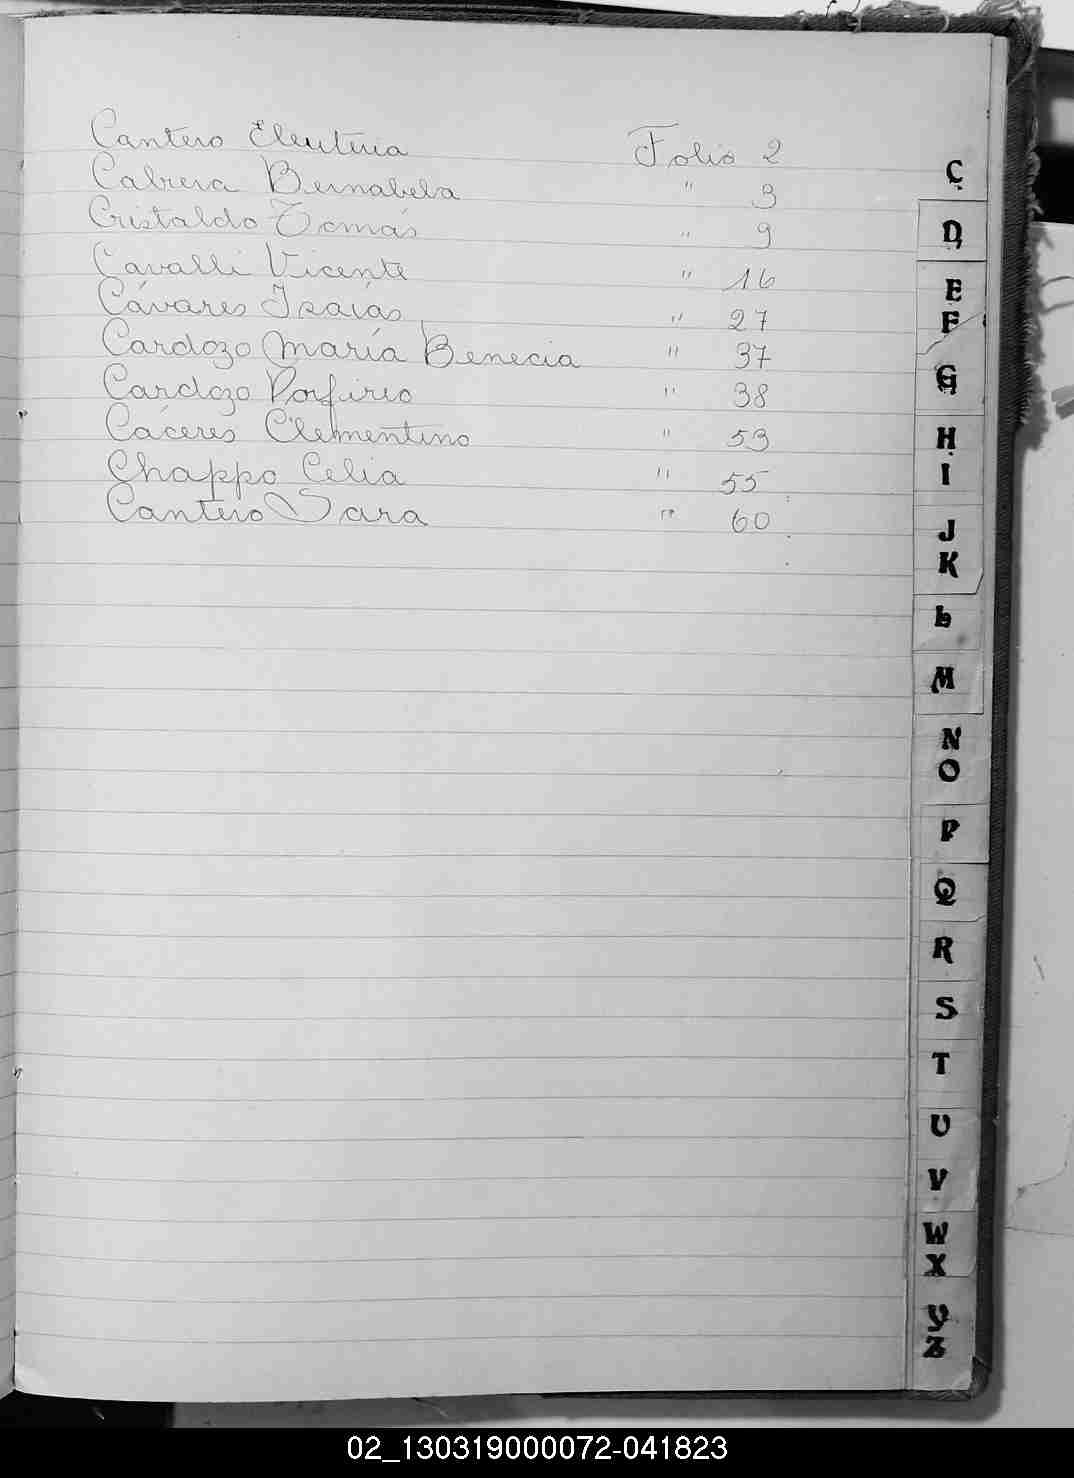 Cantero Eleuteria Folio 2
Cabrera Bernabela " 3
Cristaldo Tomás " 9
Cavalli Vicente " 16
Cávares Isaías " 27
Cardozo María Benecia " 37
Cardozo Porfirio " 38
Cáceres Clementino " 53
Chappo Celia " 55
Cantero Sara " 60
C
D
E
F
G
H
I
J
K
L
M
N
O
P
Q
R
S
T
U
V
W
X
Y
Z
02_130319000072-041823